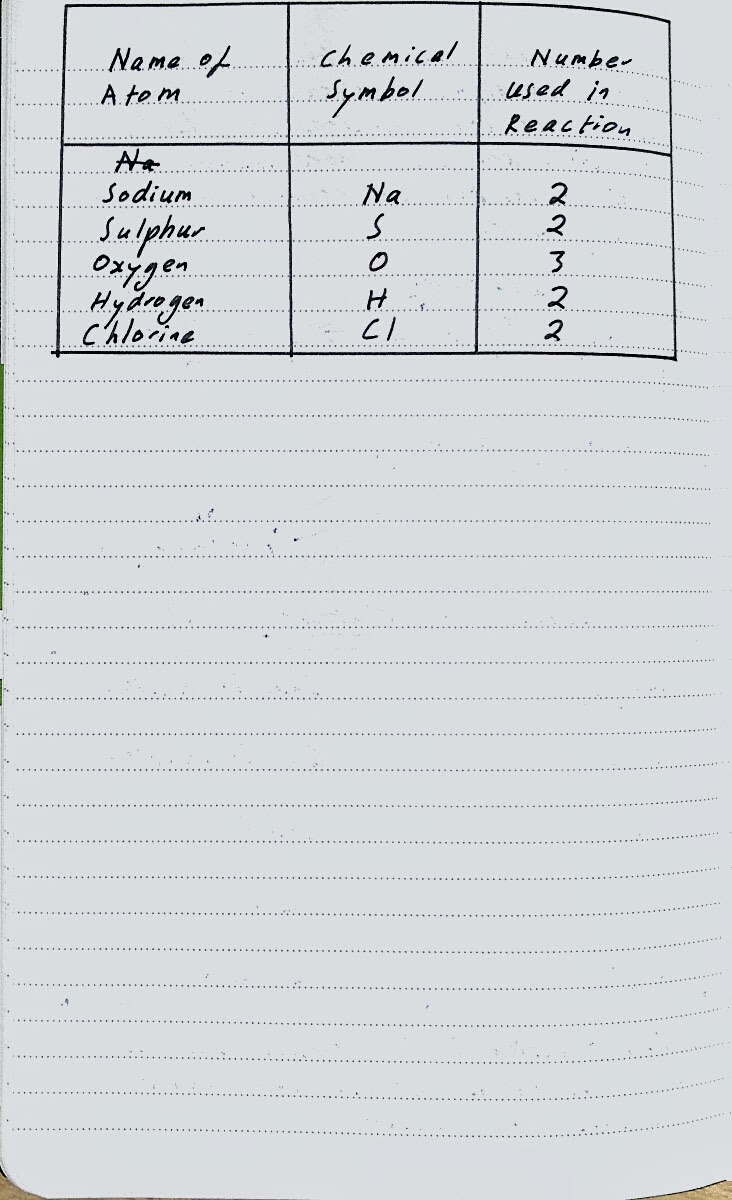 Name of Chemical Number
Atom Symbol used in
Reaction
Na
Sodium Na 2
Sulphur S 2
Oxygen O 3
Hydrogen H 2
Chlorine Cl 2